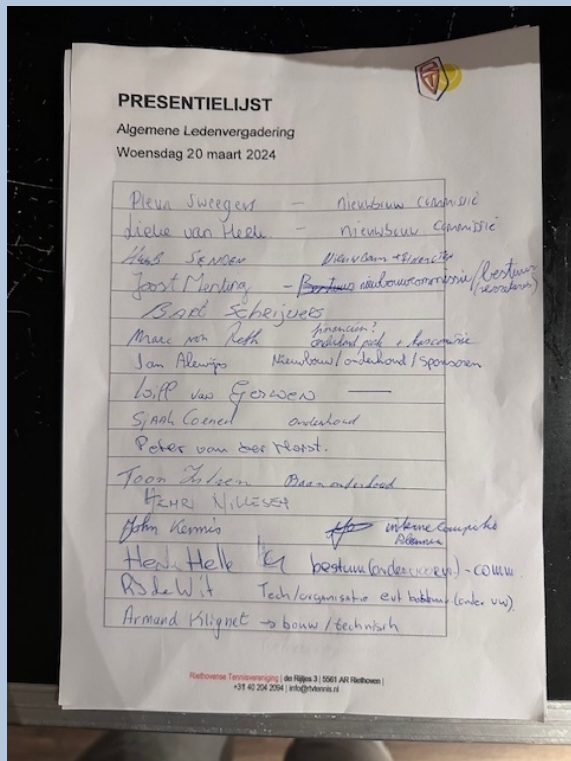 PRESENTIELIJST
Algemene Ledenvergadering
Woensdag 20 maart 2024
Sweegers — nieuwbouw commissie
Lieke van — nieuwbouw commissie
SENDEN Nieuwbouw +
Joost Menting — Bestuur nieuwbouwcommissie/bestuur
Bart Scheijvers
Marc van financien? onderhoud park +
Jan Alewijns Nieuwbouw/onderhoud/sponsoren
Will van Gerwen —
Sjaak Coenen onderhoud
Peter van der Horst.
Toon Baanonderhoud
HENRI
John Kennis interne
Henk bestuur - comm
de Wit Tech/organisatie evt
Armand Klignet → bouw/technisch
Riethovense Tennisvereniging | de Rijtjes 3 | 5561 AR Riethoven |
+31 40 204 2094 | info@rtvtennis.nl